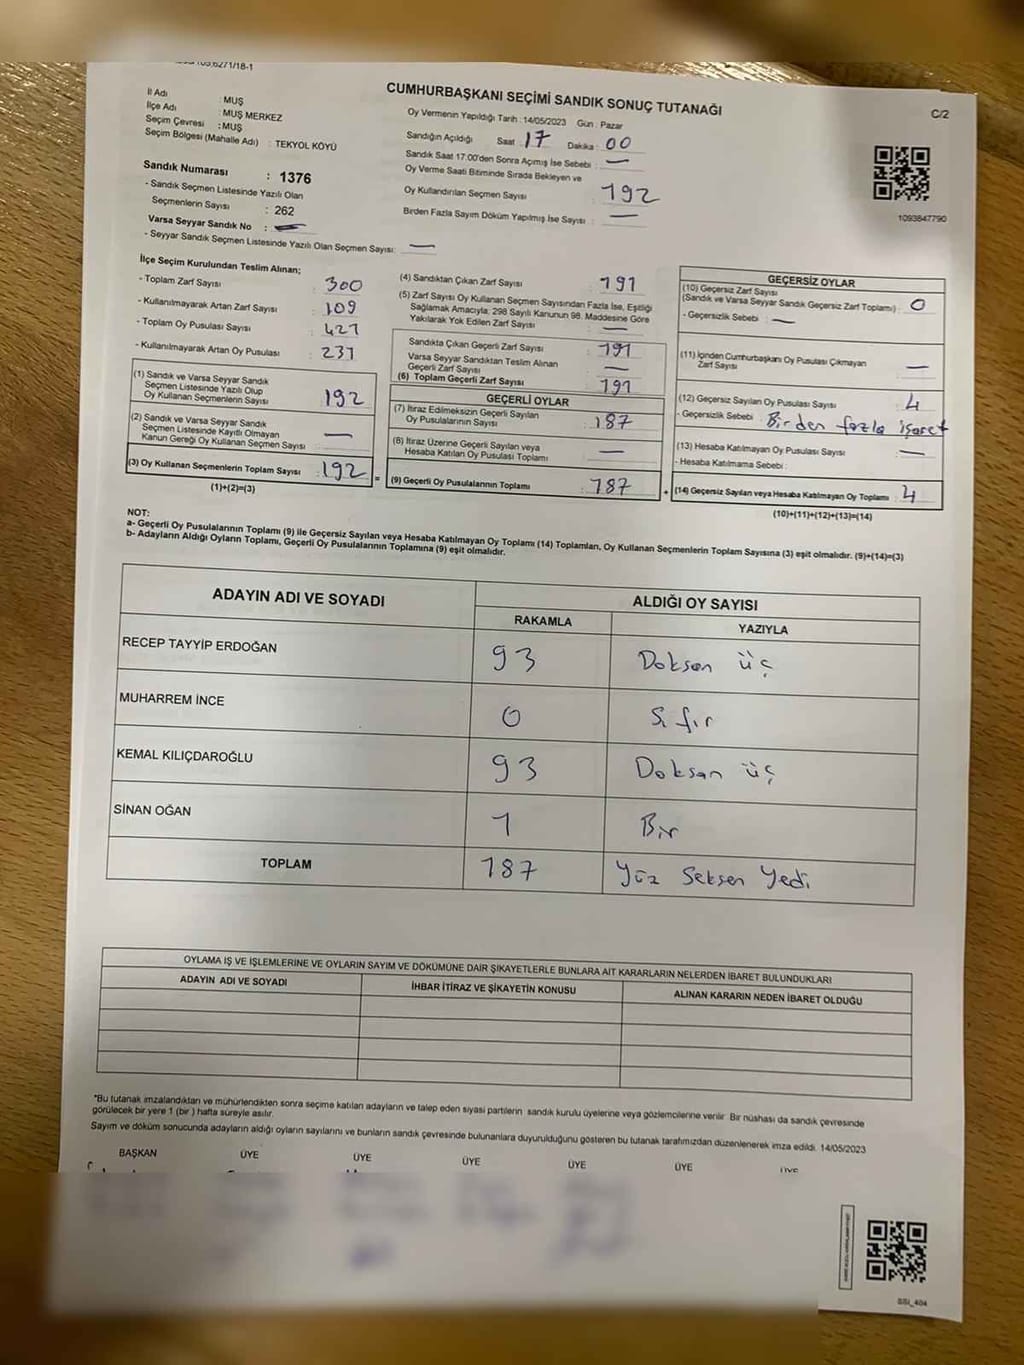 CUMHURBAŞKANI SEÇİMİ SANDIK SONUÇ TUTANAĞI
C/2
İl Adı : MUŞ
İlçe Adı : MUŞ MERKEZ
Seçim Çevresi : MUŞ
Seçim Bölgesi (Mahalle Adı) : TEKYOL KÖYÜ
Sandık Numarası : 1376
- Sandık Seçmen Listesinde Yazılı Olan
Seçmenlerin Sayısı : 262
Varsa Seyyar Sandık No :
- Seyyar Sandık Seçmen Listesinde Yazılı Olan Seçmen Sayısı: —
Oy Vermenin Yapıldığı Tarih : 14/05/2023 Gün : Pazar
Sandığın Açıldığı Saat : 17 Dakika : 00
Sandık Saat 17.00'den Sonra Açımış İse Sebebi : —
Oy Verme Saati Bitiminde Sırada Bekleyen ve
Oy Kullandırılan Seçmen Sayısı : 192
Birden Fazla Sayım Döküm Yapılmış İse Sayısı : —
1093847790
İlçe Seçim Kurulundan Teslim Alınan;
- Toplam Zarf Sayısı : 300
- Kullanılmayarak Artan Zarf Sayısı : 109
- Toplam Oy Pusulası Sayısı : 421
- Kullanılmayarak Artan Oy Pusulası : 231
(1) Sandık ve Varsa Seyyar Sandık
Seçmen Listesinde Yazılı Olup
Oy Kullanan Seçmenlerin Sayısı : 192
(2) Sandık ve Varsa Seyyar Sandık
Seçmen Listesinde Kayıtlı Olmayan
Kanun Gereği Oy Kullanan Seçmen Sayısı : —
(3) Oy Kullanan Seçmenlerin Toplam Sayısı : 192 =
(1)+(2)=(3)
(4) Sandıktan Çıkan Zarf Sayısı : 191
(5) Zarf Sayısı Oy Kullanan Seçmen Sayısından Fazla İse, Eşitliği
Sağlamak Amacıyla, 298 Sayılı Kanunun 98. Maddesine Göre
Yakılarak Yok Edilen Zarf Sayısı : —
Sandıkta Çıkan Geçerli Zarf Sayısı : 191
Varsa Seyyar Sandıktan Teslim Alınan
Geçerli Zarf Sayısı : —
(6) Toplam Geçerli Zarf Sayısı : 191
GEÇERLİ OYLAR
(7) İtiraz Edilmeksizin Geçerli Sayılan
Oy Pusulalarının Sayısı : 187
(8) İtiraz Üzerine Geçerli Sayılan veya
Hesaba Katılan Oy Pusulası Toplamı : —
(9) Geçerli Oy Pusulalarının Toplamı : 187 +
GEÇERSİZ OYLAR
(10) Geçersiz Zarf Sayısı
(Sandık ve Varsa Seyyar Sandık Geçersiz Zarf Toplamı) : 0
- Geçersizlik Sebebi : —
(11) İçinden Cumhurbaşkanı Oy Pusulası Çıkmayan
Zarf Sayısı : —
(12) Geçersiz Sayılan Oy Pusulası Sayısı : 4
- Geçersizlik Sebebi : Birden fazla işaret
(13) Hesaba Katılmayan Oy Pusulası Sayısı : —
- Hesaba Katılmama Sebebi :
(14) Geçersiz Sayılan veya Hesaba Katılmayan Oy Toplamı : 4
(10)+(11)+(12)+(13)=(14)
NOT:
a- Geçerli Oy Pusulalarının Toplamı (9) ile Geçersiz Sayılan veya Hesaba Katılmayan Oy Toplamı (14) Toplamları, Oy Kullanan Seçmenlerin Toplam Sayısına (3) eşit olmalıdır. (9)+(14)=(3)
b- Adayların Aldığı Oyların Toplamı, Geçerli Oy Pusulalarının Toplamına (9) eşit olmalıdır.
ADAYIN ADI VE SOYADI ALDIĞI OY SAYISI
RAKAMLA YAZIYLA
RECEP TAYYİP ERDOĞAN 93 Doksan üç
MUHARREM İNCE 0 Sıfır
KEMAL KILIÇDAROĞLU 93 Doksan üç
SİNAN OĞAN 1 Bir
TOPLAM 187 Yüz Seksen Yedi
OYLAMA İŞ VE İŞLEMLERİNE VE OYLARIN SAYIM VE DÖKÜMÜNE DAİR ŞİKAYETLERLE BUNLARA AİT KARARLARIN NELERDEN İBARET BULUNDUKLARI
ADAYIN ADI VE SOYADI İHBAR İTİRAZ VE ŞİKAYETİN KONUSU ALINAN KARARIN NEDEN İBARET OLDUĞU
*Bu tutanak imzalandıktan ve mühürlendikten sonra seçime katılan adayların ve talep eden siyasi partilerin sandık kurulu üyelerine veya gözlemcilerine verilir. Bir nüshası da sandık çevresinde
görülecek bir yere 1 (bir) hafta süreyle asılır.
Sayım ve döküm sonucunda adayların aldığı oyların sayılarını ve bunların sandık çevresinde bulunanlara duyurulduğunu gösteren bu tutanak tarafımızdan düzenlenerek imza edildi. 14/05/2023
BAŞKAN ÜYE ÜYE ÜYE ÜYE ÜYE ÜYE
SSI_404